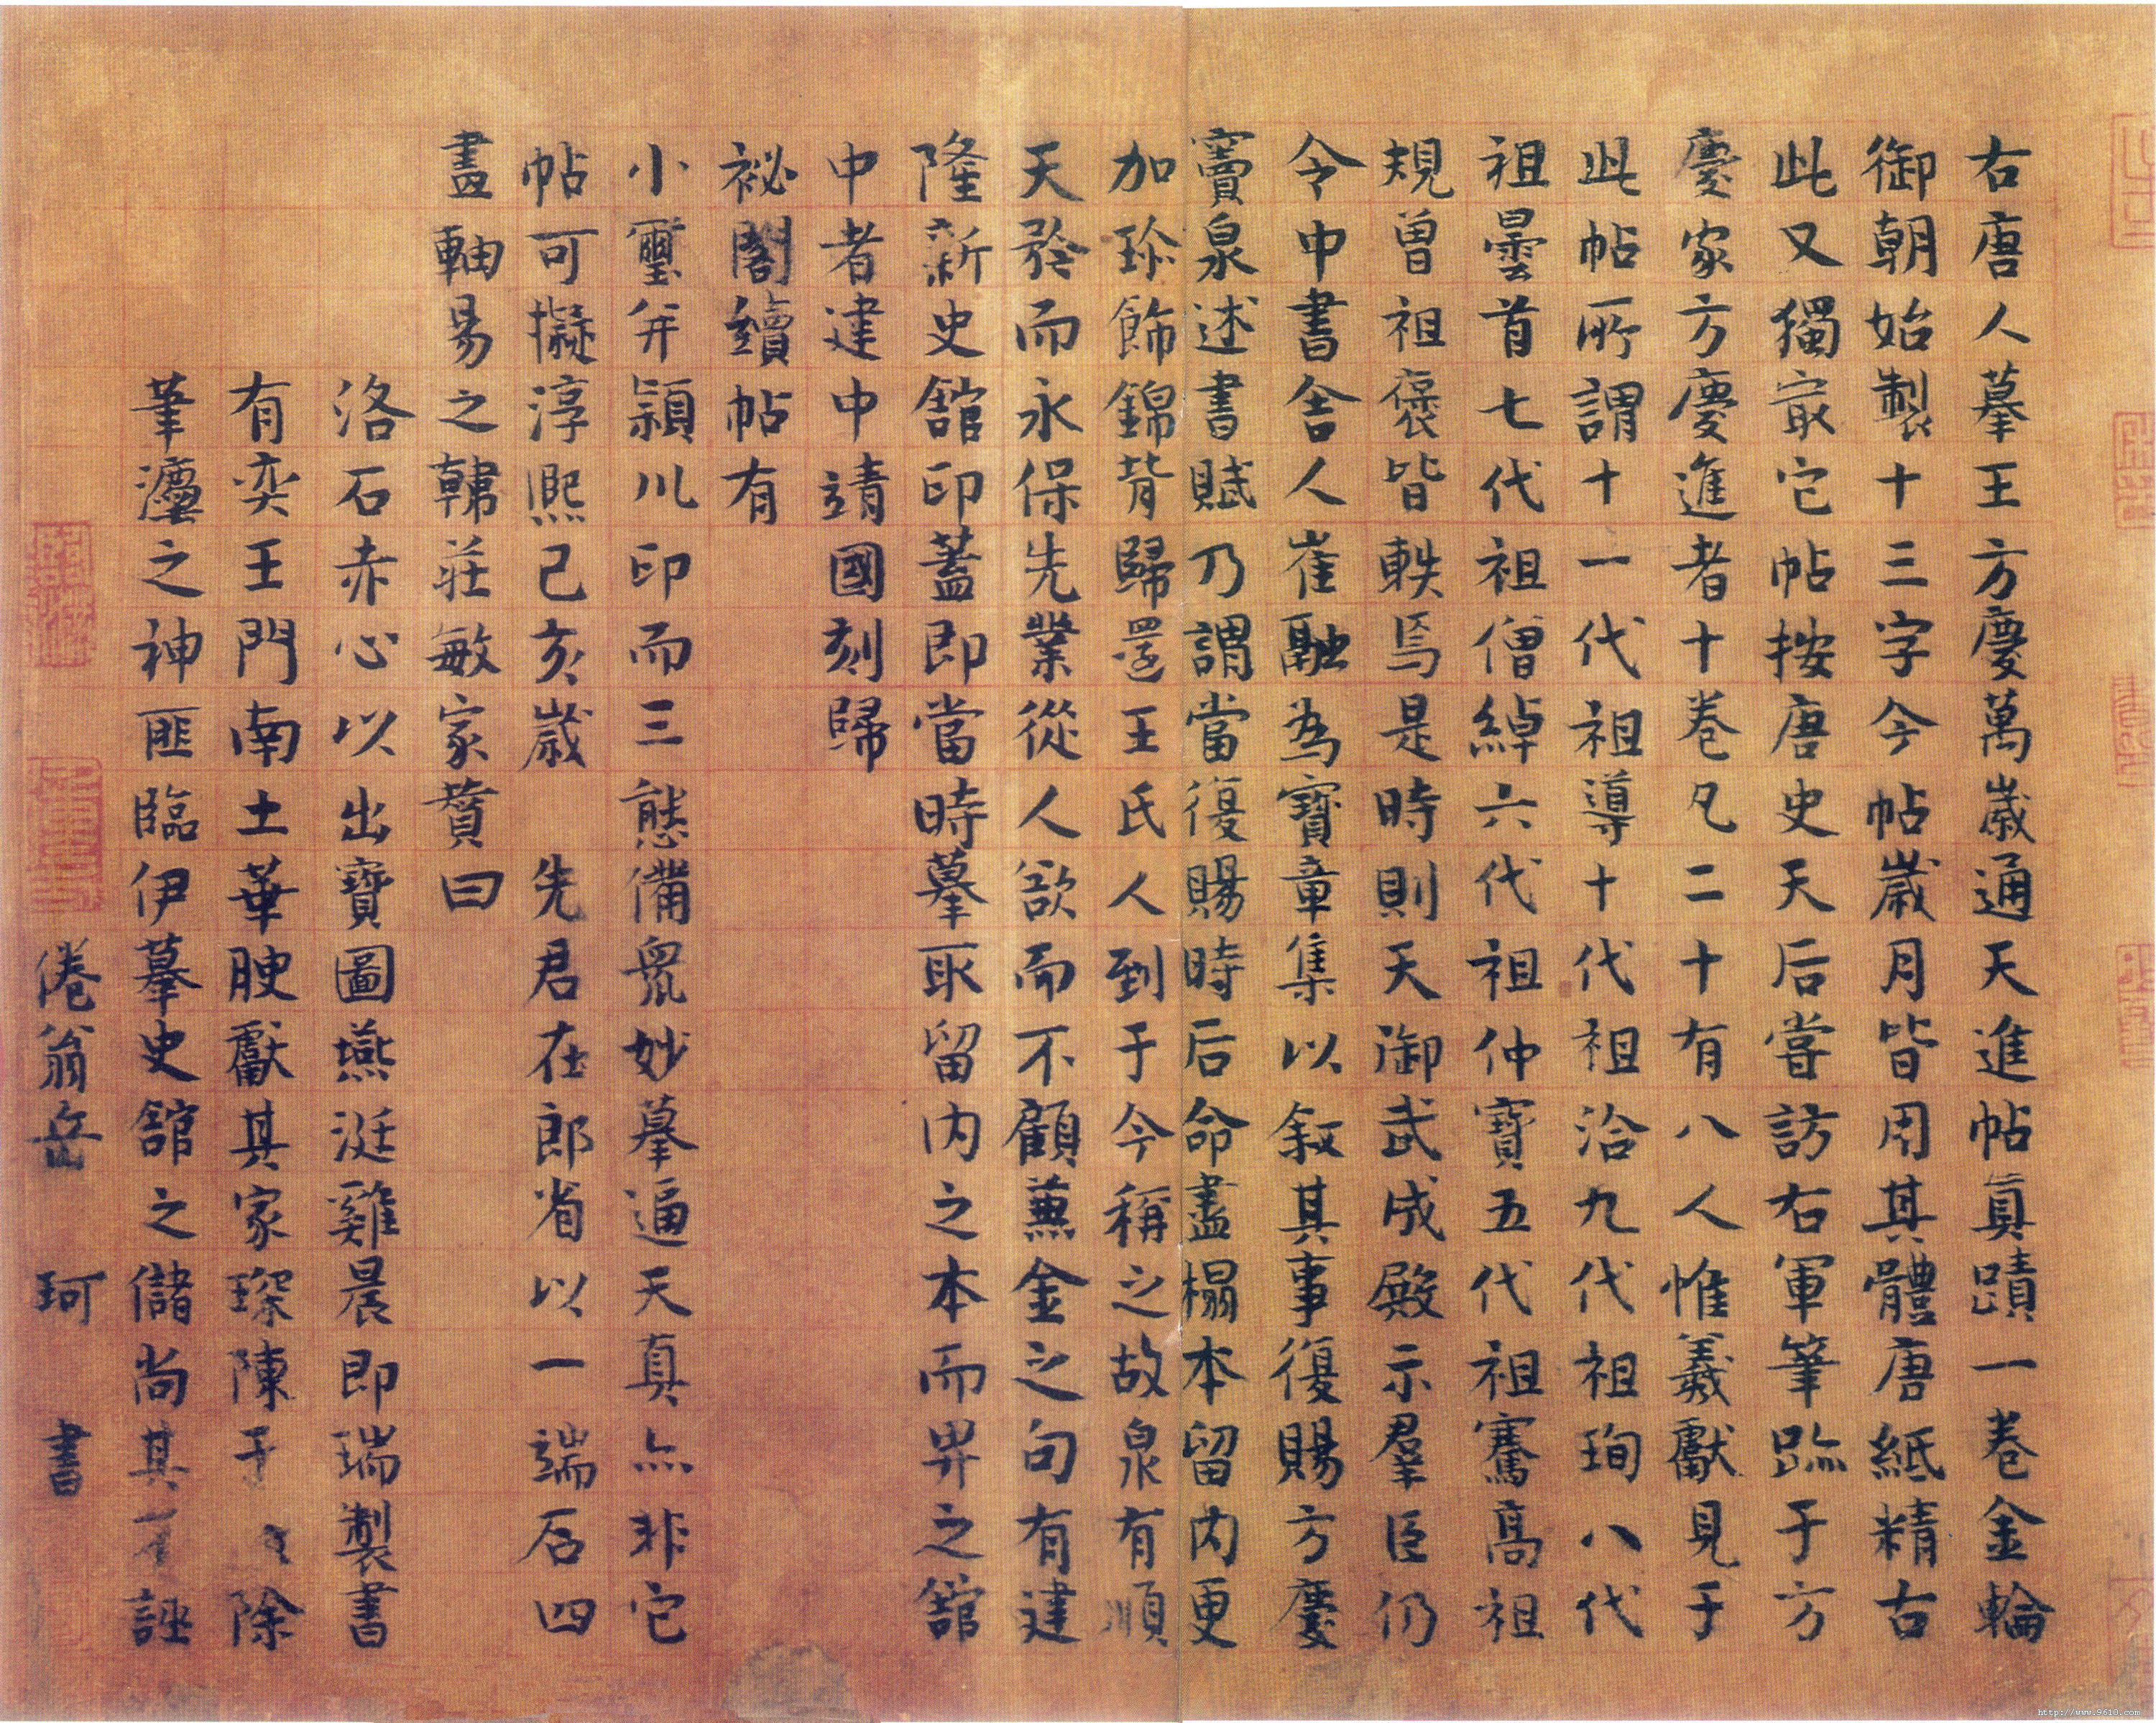 右唐人摹王方慶萬歲通天進帖真蹟一卷金輪
御朝始製十三字今帖歲月皆用其體唐紙精古
此又獨㝡它帖按唐史天后嘗訪右軍筆跡于方
慶家方慶進者十卷凡二十有八人惟羲獻見于
此帖所謂十一代祖導十代祖洽九代祖珣八代
祖曇首七代祖僧綽六代祖仲寶五代祖騫高祖
規曾祖褒皆軼焉是時則天御武成殿示羣臣仍
令中書舍人崔融為寶章集以叙其事復賜方慶
竇泉述書賦乃謂當復賜時后命盡榻本留內更
加珍飾錦背歸還王氏人到于今稱之故泉有順
天矜而永保先業從人欲而不顧兼金之句有建
隆新史館印蓋即當時摹取留內之本而畀之館
中者建中靖國刻歸
祕閣續帖有
小璽并潁川印而三態備衆妙摹逼天真亦非它
帖可擬淳熙己亥歲 先君在郎省以一端石四
盡軸易之韓莊敏家贊曰
洛石赤心以出寶圖燕涎雞晨即瑞製書
有奕王門南土華腴獻其家琛陳于 除
筆灋之神匪臨伊摹史館之儲尚其 誣
倦翁岳 珂 書
http://www.9610.com